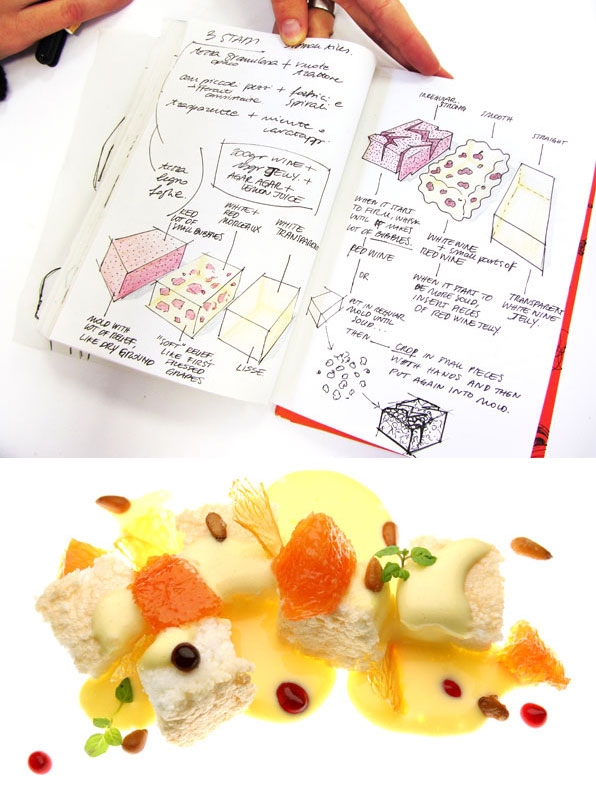 3 STAM
terra granulosa + vuote
opaco
con piccoli pezzi +
spirali
trasparente + niente
terra
legno
foglie
200gr WINE +
JELLY +
AGAR AGAR +
LEMON JUICE
RED
LOT OF
SMALL BUBBLES
WHITE +
RED
MORCEAUX
WHITE
TRANSPARENT
MOLD WITH
LOT OF RELIEF
LIKE DRY GROUND
"SOFT" RELIEF
LIKE FIRST
PRESSED
GRAPES
LISSE
IRREGULAR
STRONG
SMOOTH
STRAIGHT
WHEN IT START
TO FIRM, WHISK
UNTIL IT MAKES
LOT OF BUBBLES.
RED WINE
OR
PUT IN REGULAR
MOLD UNTIL
SOLID
THEN CROP IN SMALL PIECES
WITH HANDS AND THEN
PUT AGAIN INTO MOLD.
WHITE WINE
+ SMALL PARTS OF
RED WINE
WHEN IT START TO
BE MORE SOLID,
INSERT PIECES
OF RED WINE JELLY.
TRANSPARENT
WHITE WINE
JELLY.